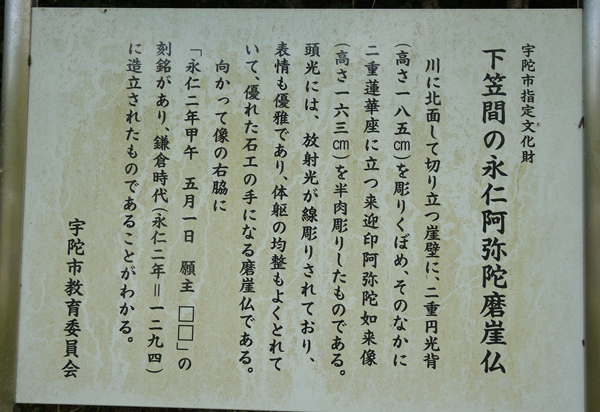 宇陀市指定文化財
下笠間の永仁阿弥陀磨崖仏
川に北面して切り立つ崖壁に、二重円光背
(高さ一八五㎝)を彫りくぼめ、そのなかに
二重蓮華座に立つ来迎印阿弥陀如来像
(高さ一六三㎝)を半肉彫りしたものである。
頭光には、放射光が線彫りされており、
表情も優雅であり、体躯の均整もよくとれて
いて、優れた石工の手になる磨崖仏である。
向かって像の右脇に
「永仁二年甲午 五月一日 願主 □□」の
刻銘があり、鎌倉時代(永仁二年＝一二九四)
に造立されたものであることがわかる。
宇陀市教育委員会